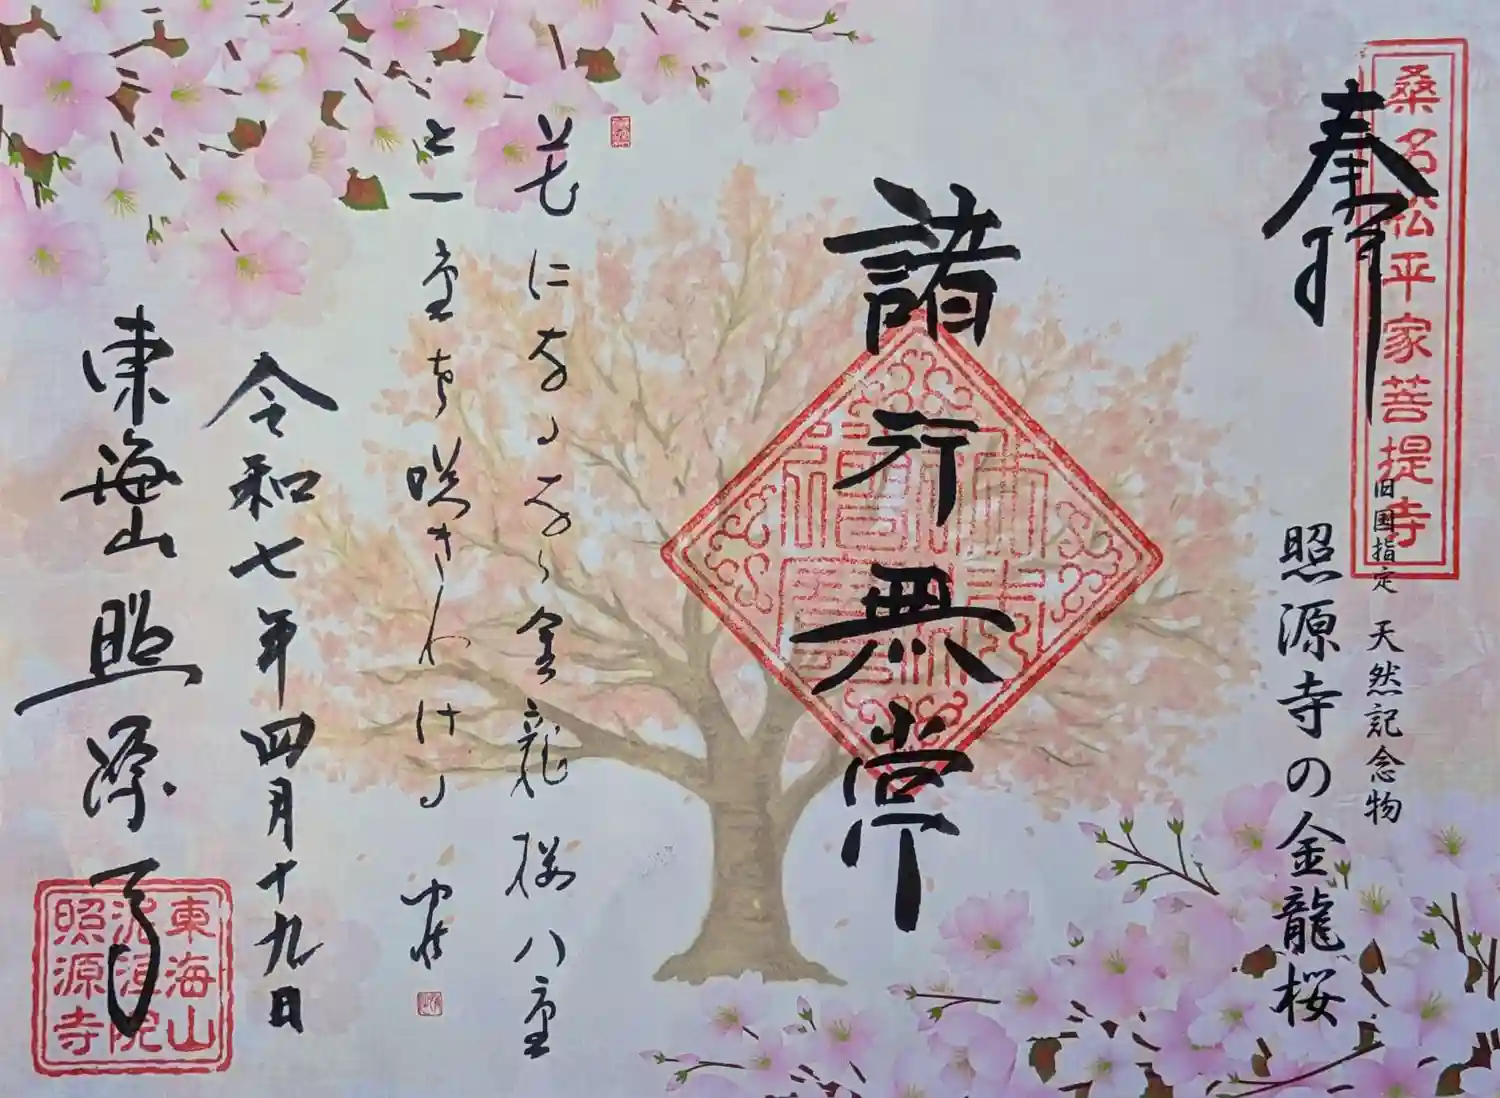 桑名松平家菩提寺
奉拝
旧国指定 天然記念物
照源寺の金龍桜
諸行無常
金龍桜八重
と一重を咲きわけ
令和七年四月十九日
東海山照源寺
東海山
泥洹院
照源寺